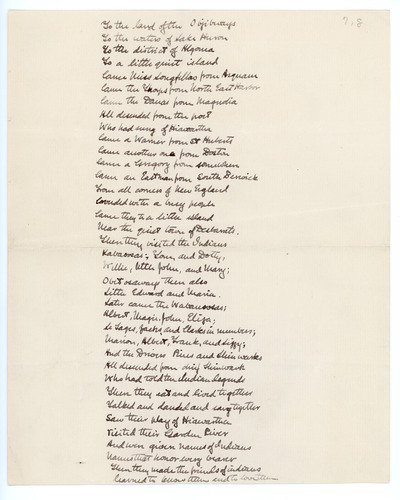 7, 8
To the land of the Ojibways
To the waters of Lake Huron
To the district of Algoma
To a little quiet island
Came Miss Longfellow from
Came the Thorps from North East Harbor
Came the Danas from Magnolia
All descended from the poet
Who had sung of Hiawatha
Came a Warner from St Huberts
Came another one from Boston
Came a Gregory from somewhere
Came an Eastman from South Berwick
From all corners of New England
Crowded with a busy people
Came they to a little island
Near the quiet town of Desbarats.
Then they visited the Indians
Kabaoosas; Tom, and Dolly,
Willie, little John, and Mary;
also
Little Edward and Maria.
Later came the Wabunosas;
Albert, Maggie, John, Eliza;
and in numbers;
Marion, Albert, Frank, and Lizzy;
And the Pines and Shinwauks
All descended from Shinwauk
Who had told the Indian legends
Then they sat and lived together
Talked and danced and sang together
Saw their play of Hiawatha
Visited their Garden River
And were given names of Indians
Names that honor every bearer
Then they made the friends of indians
learned to know them and to love them